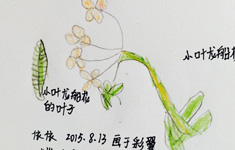 小叶龙船花
小叶龙船花
的叶子
依依 2015.8.13 画于彩翼